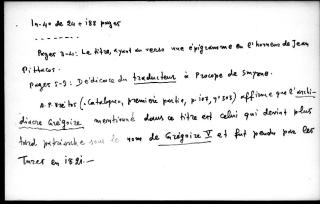 In-4° de 24 + 188 pages
--------
Pages 3-4: Le titre, ayant au verso une épigramme en l'honneur de Jean
Pittacos.
Pages 5-9: Dédicace du traducteur à Procope de Smyrne.
A. P. Brétos (Catalogue, première partie, p. 108, n° 303) affirme que l'archi-
diacre Grégoire mentionné dans ce titre est celui qui devint plus
tard patriarche sous le nom de Grégoire V et fut pendu par les
Turcs en 1821.—